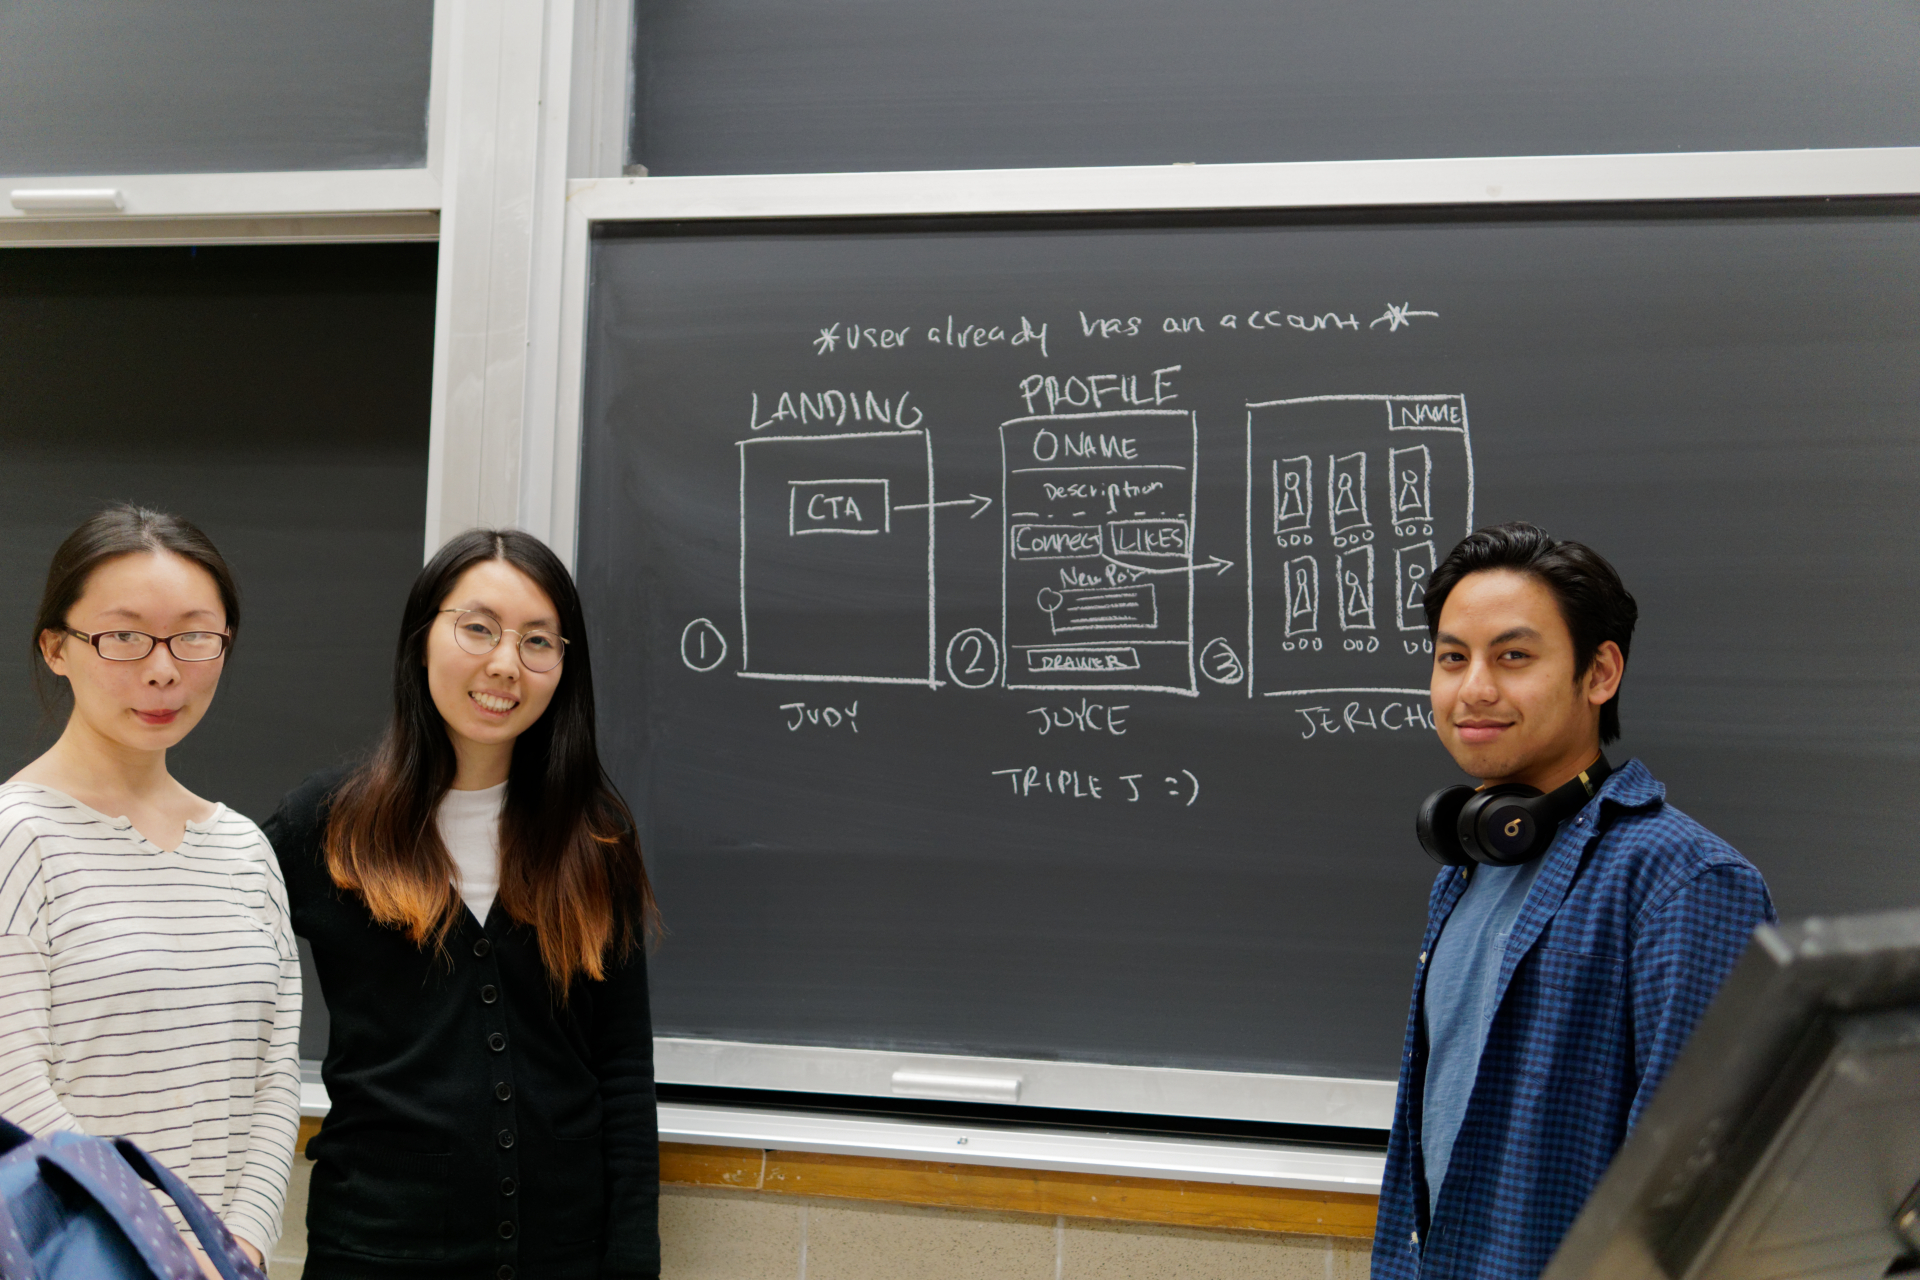 *user already has an account*
LANDING
CTA
1
JUDY
PROFILE
O NAME
Description
Connect LIKES
New Pos
DRAWER
2
JOYCE
NAME
3
JERICHO
TRIPLE J :)